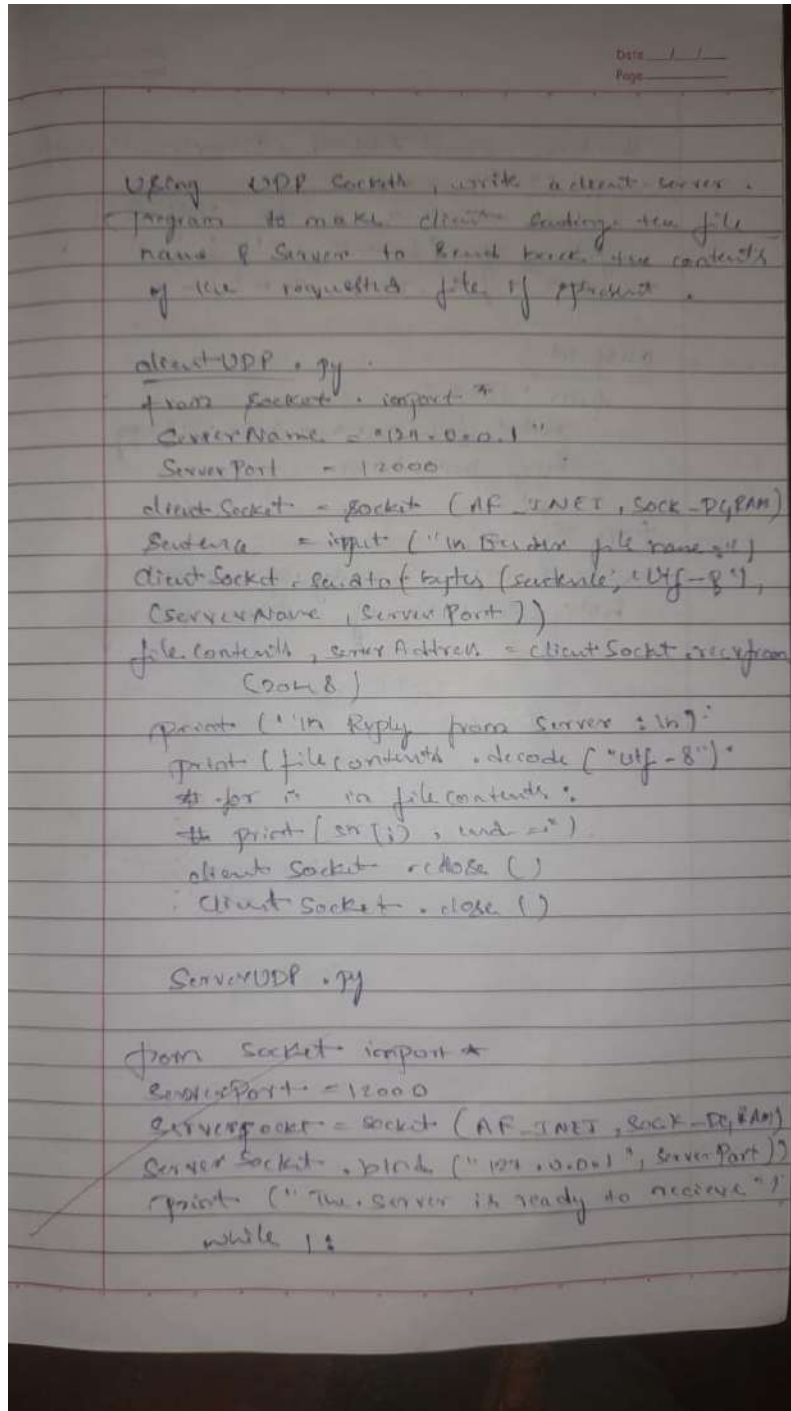 Date / /
Page
Using UDP Sockets, write a client-server.
program to make client sending the file
name & Server to send back the contents
of the requested file if present.
clientUDP.py
from socket. import *
ServerName = "127.0.0.1"
ServerPort = 12000
clientSocket = socket (AF_INET, SOCK_DGRAM)
Sentence = input ("\n file name :")
clientSocket. (bytes (sentence, "utf-8"),
(serverName, ServerPort))
filecontents, serverAddress = clientSocket.recvfrom
(2048)
print ("\n Reply from Server : \n")
print (filecontents.decode ("utf-8")
# for i in filecontents :
# print (str (i), end = "")
clientSocket.close ()
clientSocket.close ()
ServerUDP.py
from socket import *
ServerPort = 12000
= socket (AF_INET, SOCK_DGRAM)
ServerSocket.bind ("127.0.0.1", ServerPort))
print ("The. server is ready to recieve")
while 1: